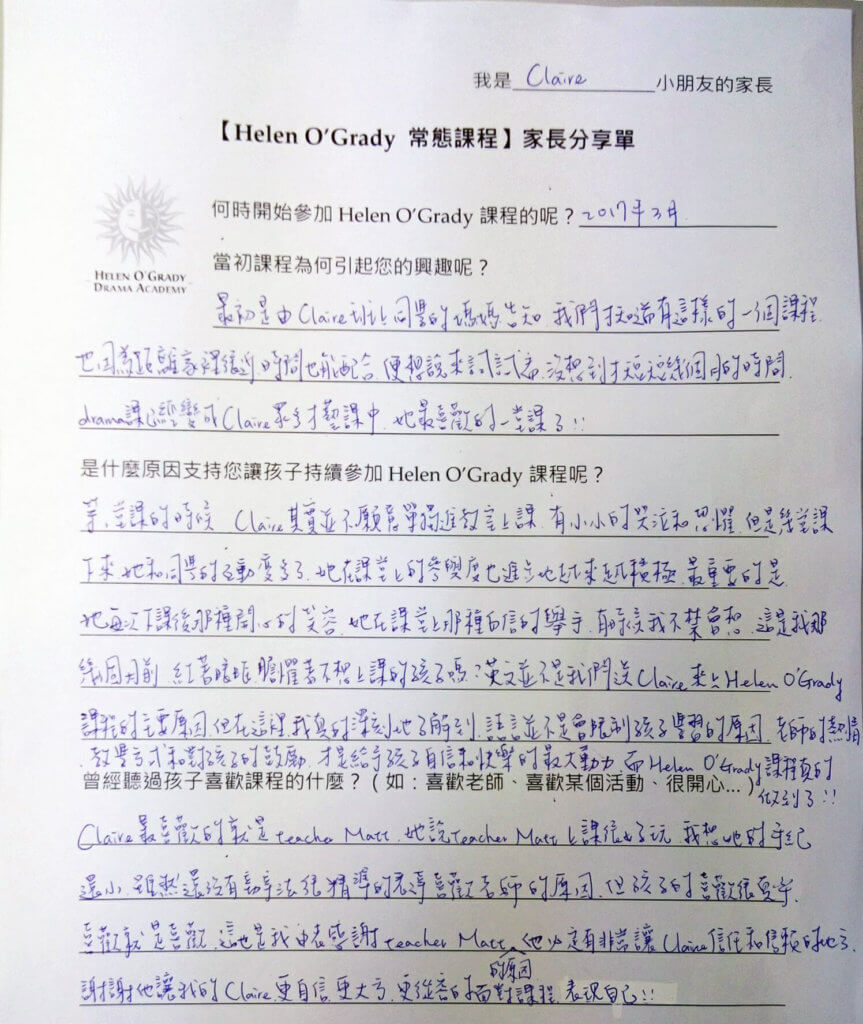 我是 Claire 小朋友的家長
【Helen O'Grady 常態課程】家長分享單
HELEN O'GRADY
DRAMA ACADEMY
何時開始參加 Helen O'Grady 課程的呢？2017年3月
當初課程為何引起您的興趣呢？
最初是由Claire班上同學的媽媽告知，我們才知道有這樣的一個課程
也因為距離家裡很近，時間也能配合，便想說來試試看，沒想到才短短幾個月的時間，
drama課已經變成Claire眾多才藝課中，她最喜歡的一堂課了!!
是什麼原因支持您讓孩子持續參加 Helen O'Grady 課程呢？
第一堂課的時候，Claire其實並不願意單獨進教室上課，有小小的哭泣和恐懼，但是幾堂課
下來，她和同學的互動變多了，她在課堂上的參與度也進步地越來越積極，最重要的是
她每次下課後那種開心的笑容，她在課堂上那種自信的舉手，有時候我不禁會想，這是我那
幾個月前，紅著眼眶，膽懼著不想上課的孩子嗎？英文並不是我們送Claire來上Helen O'Grady
課程的主要原因，但在這裡，我真的深刻地了解到，語言並不是會限制孩子學習的原因，老師的熱情
、教學方式和對孩子的鼓勵，才是給予孩子自信和快樂的最大動力，而Helen O'Grady課程真的
做到了!!
曾經聽過孩子喜歡課程的什麼？（如：喜歡老師、喜歡某個活動、很開心...）
Claire最喜歡的就是teacher Matt，她說teacher Matt上課很好玩，我想她的年紀
還小，雖然還沒有辦法很精準的表達喜歡老師的原因，但孩子的喜歡很真實，
喜歡就是喜歡，這也是我由衷感謝teacher Matt的原因，他必定有非常讓Claire信任和信賴的地方，
謝謝他讓我的Claire，更自信，更大方，更從容的面對課程，表現自己!!